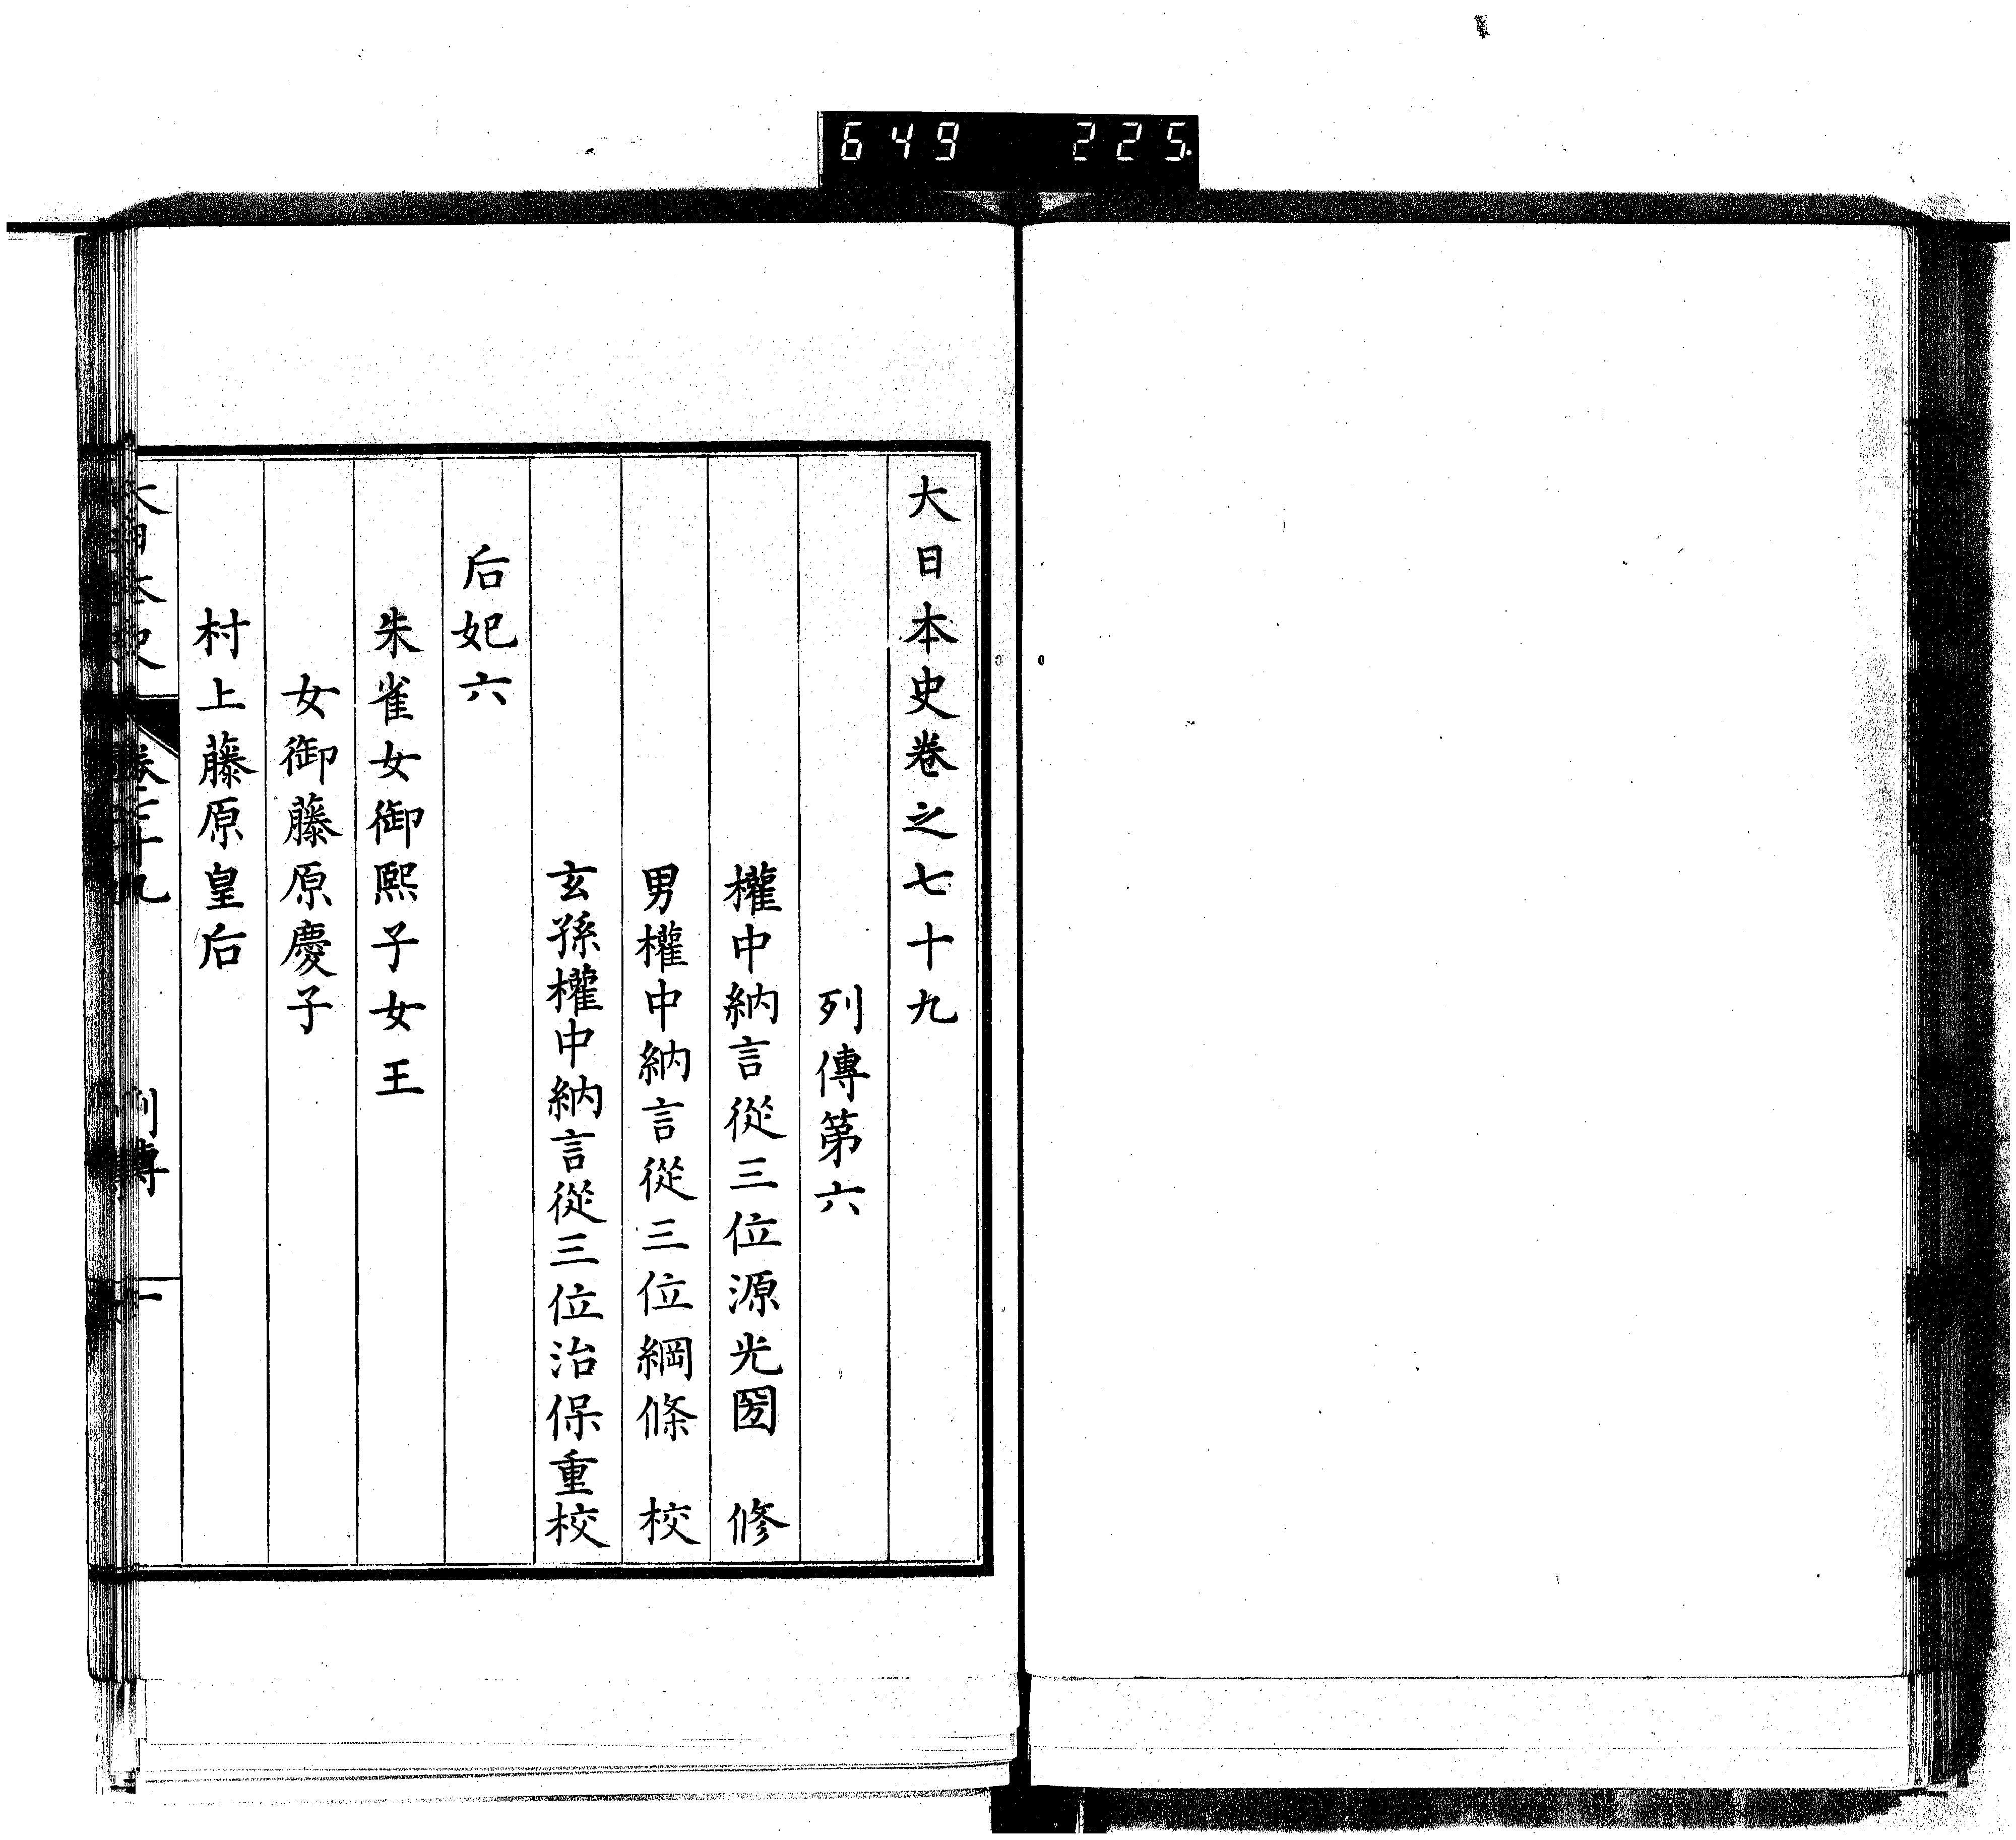 649 225
大日本史卷之七十九
列傳第六
權中納言從三位源光圀 修
男權中納言從三位綱條 校
玄孫權中納言從三位治保重校
后妃六
朱雀女御熙子女王
女御藤原慶子
村上藤原皇后
大日本史 卷七十九 列傳 一